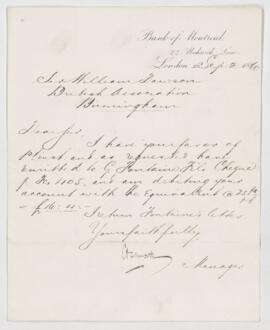 Bank of Montreal
22 Abchurch Lane
London 2 Sep.
Sir William Dawson
British Association
Birmingham
Dear Sir,
I have your favor of
1st inst and as requested have
remitted to G. Fontaine Fils Cheque
for Frs 405, and am debiting your
account with the Equivalent @ 25
£16
I return Fontaine's letter
Yours faithfully
Manager